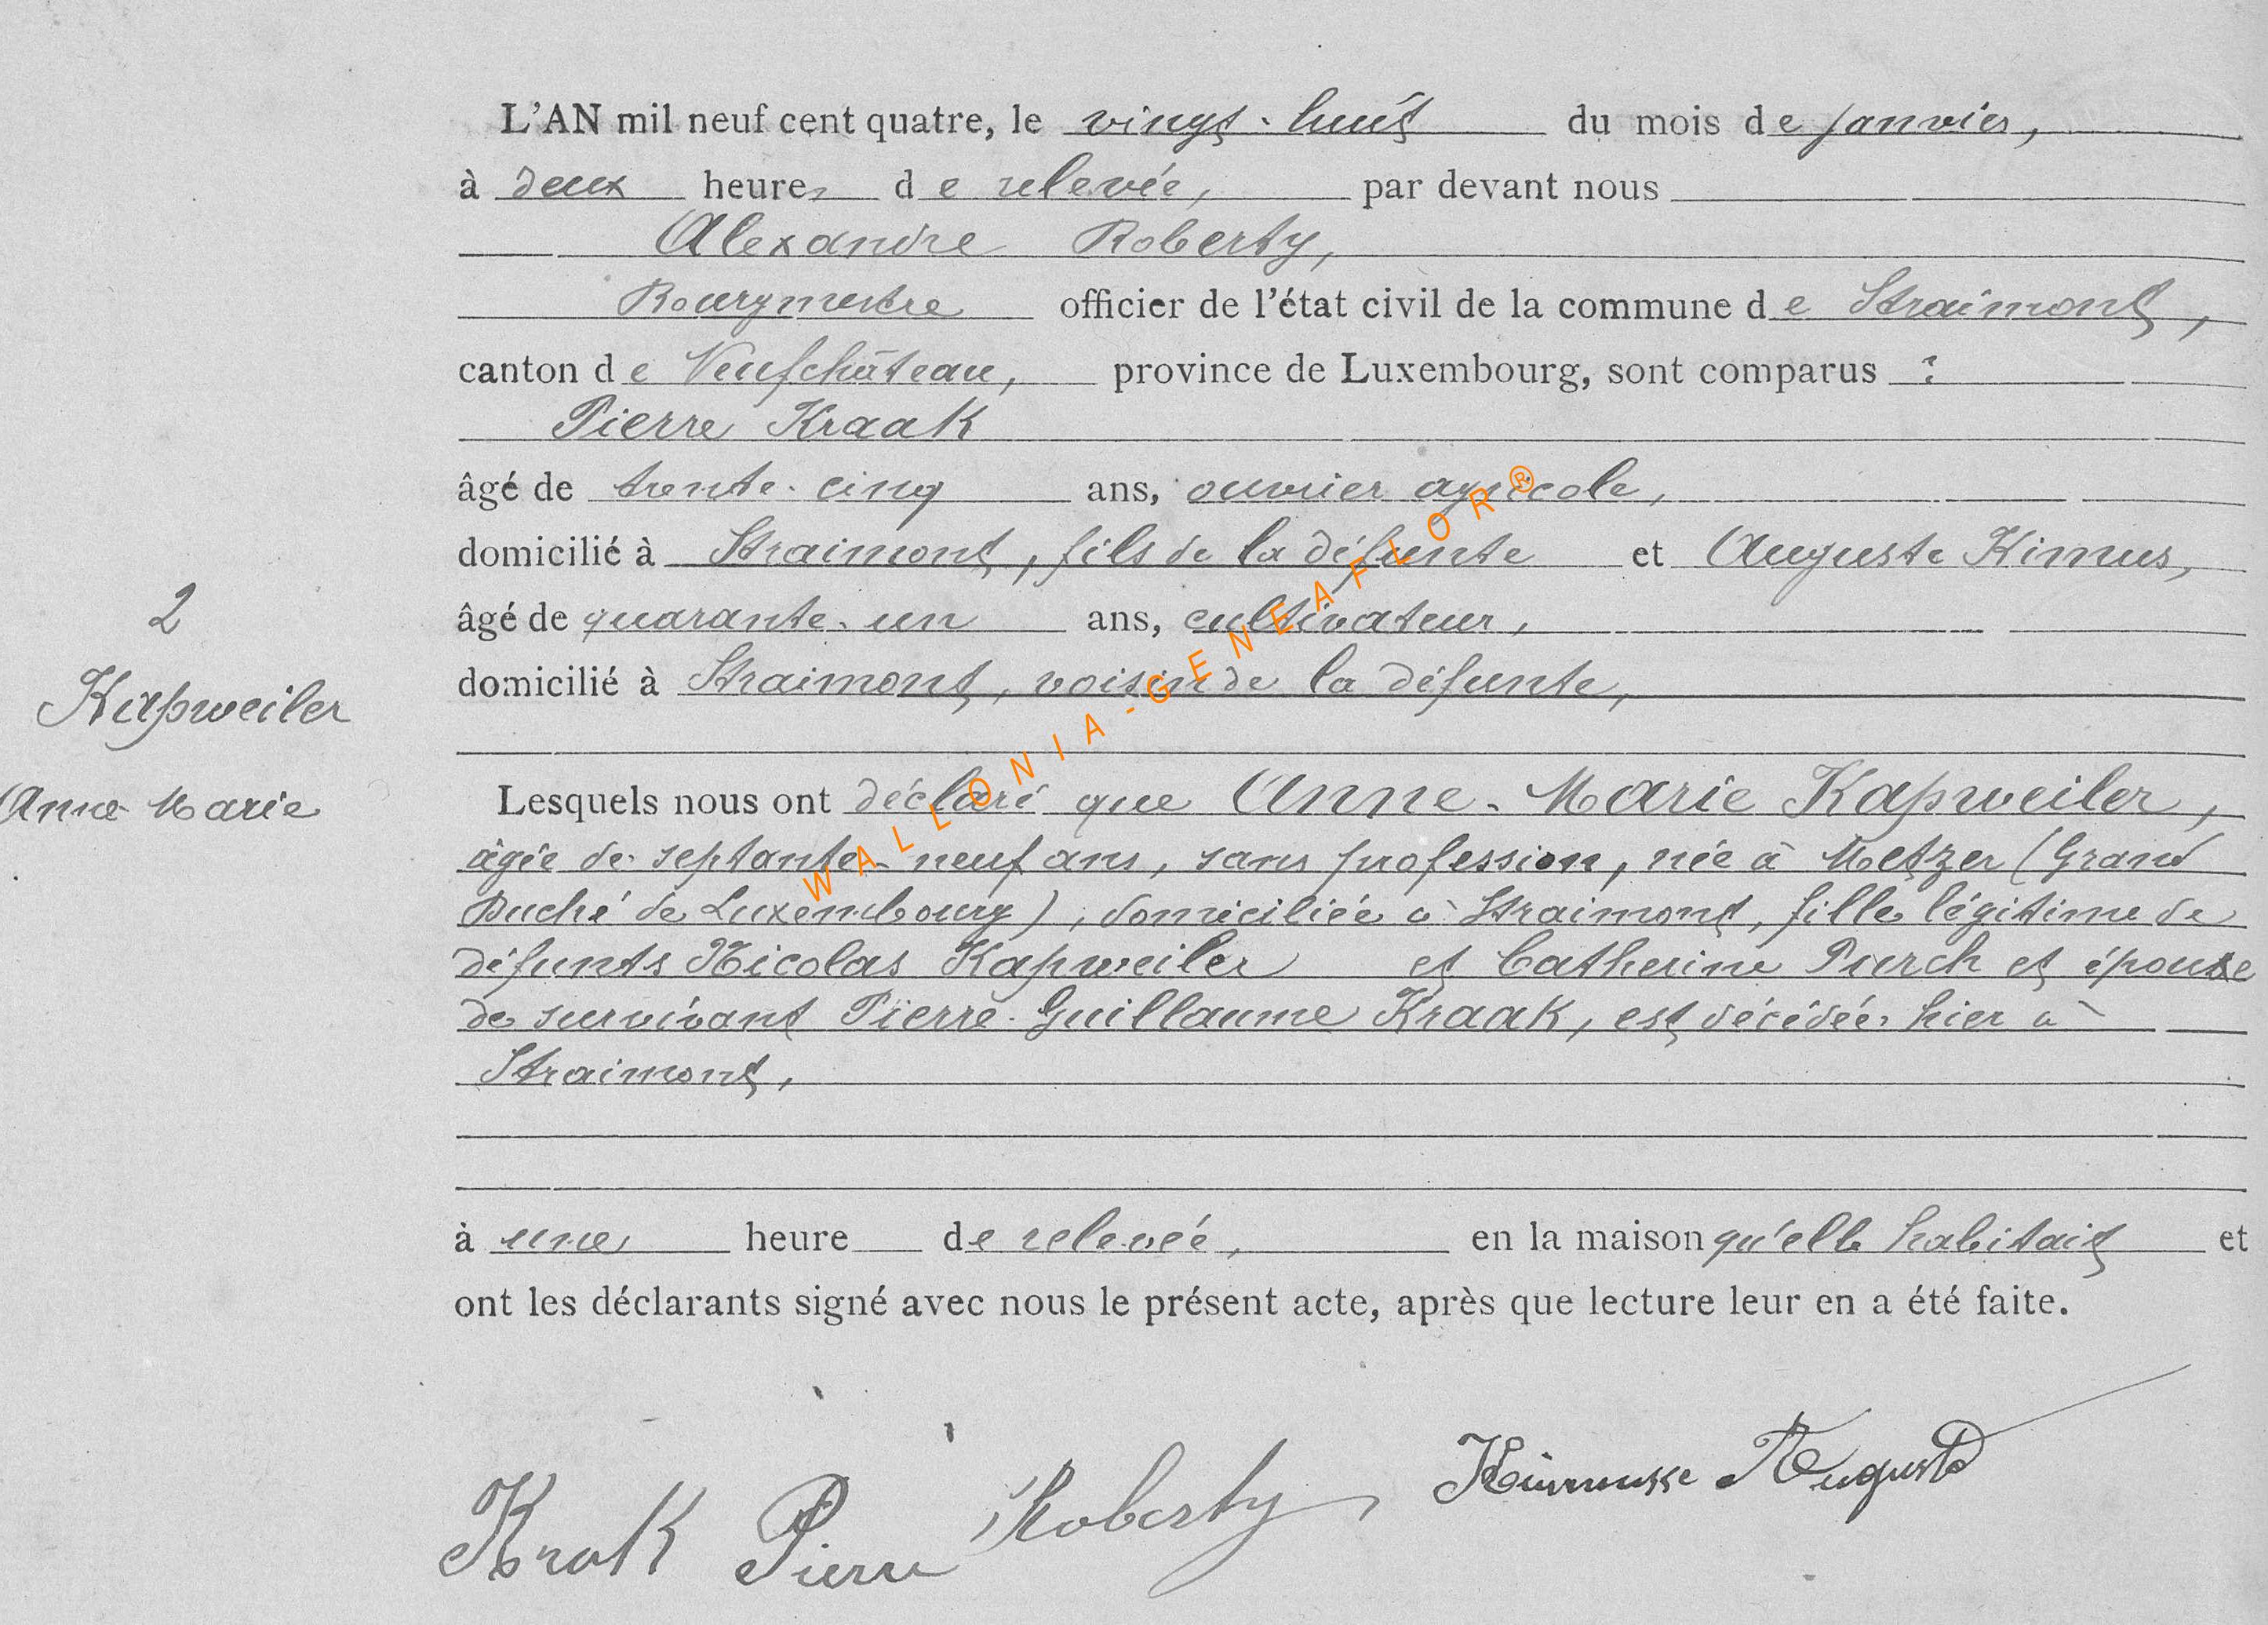 L'AN mil neuf cent quatre, le vingt-huit du mois de janvier,
à deux heures de relevée, par devant nous
Alexandre Roberty,
Bourgmestre officier de l'état civil de la commune de Straimont,
canton de Neufchâteau, province de Luxembourg, sont comparus :
Pierre Kraak
âgé de trente-cinq ans, ouvrier agricole,
domicilié à Straimont, fils de la défunte et Auguste Kimus,
âgé de quarante-un ans, cultivateur,
domicilié à Straimont, voisin de la défunte,
2
Kapweiler
Anne Marie
Lesquels nous ont déclaré que Anne-Marie Kapweiler,
âgée de septante-neuf ans, sans profession, née à Metzer (Grand
Duché de Luxembourg), domiciliée à Straimont, fille légitime de
défunts Nicolas Kapweiler et Catherine Purch et épouse
de survivant Pierre-Guillaume Kraak, est décédée hier à
Straimont,
à une heure de relevée, en la maison qu'elle habitait et
ont les déclarants signé avec nous le présent acte, après que lecture leur en a été faite.
Krak Pierre Roberty Auguste
WALLONIA-GENEAFLOR®